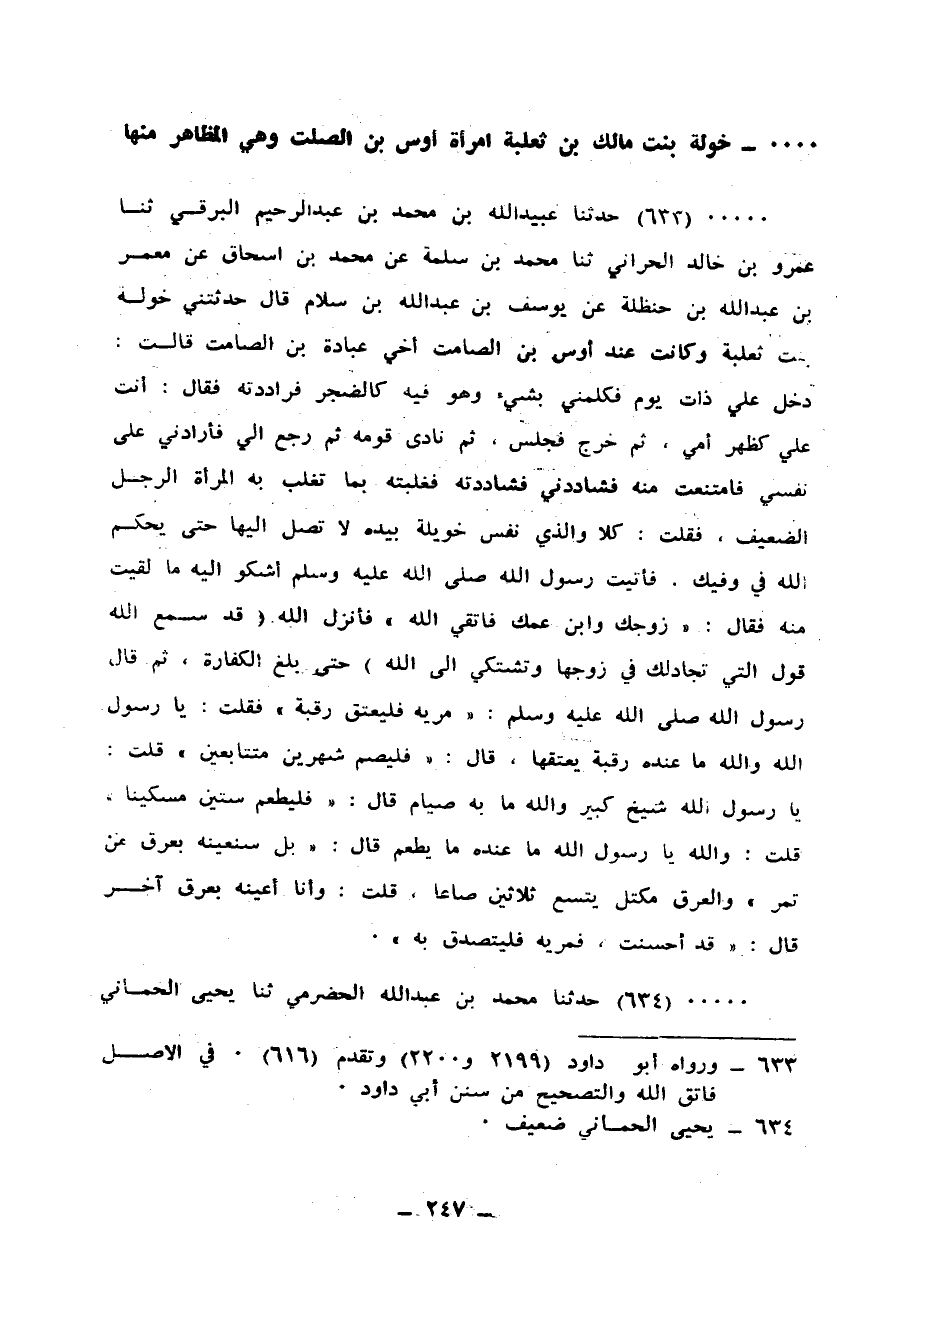 ٠٠٠٠ ــ خولة بنت مالك بن ثعلبة امرأة أوس بن الصلت وهي المظاهر منها
٠٠٠٠٠ (٦٣٣) حدثنا عبيدالله بن محمد بن عبدالرحيم البرقـي ثنـا
عمرو بن خالد الحراني ثنا محمد بن سلمة عن محمد بن اسحاق عن معمـر
بن عبدالله بن حنظلة عن يوسف بن عبدالله بن سلام قال حدثتني خولـة
بنت ثعلبة وكانت عند أوس بن الصامت أخي عبادة بن الصامت قالـت :
دخل علي ذات يوم فكلمني بشيء وهو فيه كالضجر فراددته فقال : أنت
علي كظهر أمي ، ثم خرج فجلس ، ثم نادى قومه ثم رجع الي فأرادني على
نفسي فامتنعت منه فشاددني فشاددته فغلبته بما تغلب به المرأة الرجـل
الضعيف ، فقلت : كلا والذي نفس خويلة بيده لا تصل اليها حتى يحكـم
الله في وفيك . فأتيت رسول الله صلى الله عليه وسلم أشكو اليه ما لقيت
منه فقال : « زوجك وابن عمك فاتقي الله » فأنزل الله ( قد سـمع الله
قول التي تجادلك في زوجها وتشتكي الى الله ) حتى بلغ الكفارة ، ثم قال
رسول الله صلى الله عليه وسلم : « مريه فليعتق رقبة » فقلت : يا رسول
الله والله ما عنده رقبة يعتقها ، قال : « فليصم شهرين متتابعين » قلت :
يا رسول الله شيخ كبير والله ما به صيام قال : « فليطعم ستين مسكينا ،
قلت : والله يا رسول الله ما عنده ما يطعم قال : « بل سنعينه بعرق من
تمر » والعرق مكتل يتسع ثلاثين صاعا ، قلت : وأنا أعينه بعرق آخـر
قال : « قد أحسنت ، فمريه فليتصدق به » ٠
٠٠٠٠٠ (٦٣٤) حدثنا محمد بن عبدالله الحضرمي ثنا يحيى الحمـاني
٦٣٣ ــ ورواه أبو داود (٢١٩٩ و٢٢٠٠) وتقدم (٦١٦) ٠ في الاصـل
فاتق الله والتصحيح من سنن أبي داود ٠
٦٣٤ ــ يحيى الحمـاني ضعيف ٠
ــ ٢٤٧ ــ